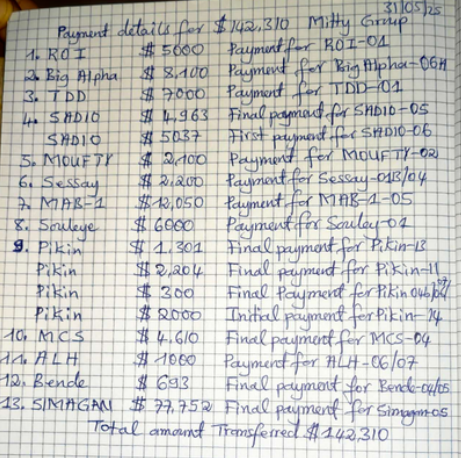 31/05/25
Payment details for $142,310 Mitty Group
1. ROI $5000 Payment for ROI-01
2. Big Alpha $8,100 Payment for Big Alpha-06A
3. TDD $7000 Payment for TDD-01
4. SADIO $4,963 Final payment for SADIO-05
SADIO $5037 First payment for SADIO-06
5. MOUFTY $2,100 Payment for MOUFTY-02
6. Sessay $2,200 Payment for Sessay-01B/04
7. MAB-1 $12,050 Payment for MAB-1-05
8. Souleye $6000 Payment for Souley-01
9. Pikin $1,301 Final payment for Pikin-13
Pikin $2,204 Final payment for Pikin-11
Pikin $300 Final Payment for Pikin 04b
Pikin $2000 Initial payment for Pikin-14
10. MCS $4,610 Final payment for MCS-04
11. ALH $1000 Payment for ALH-06/07
12. Bende $693 Final payment for Bende-04/05
13. SIMAGAN $77,752 Final payment for Simagan-05
Total amount Transferred $142,310